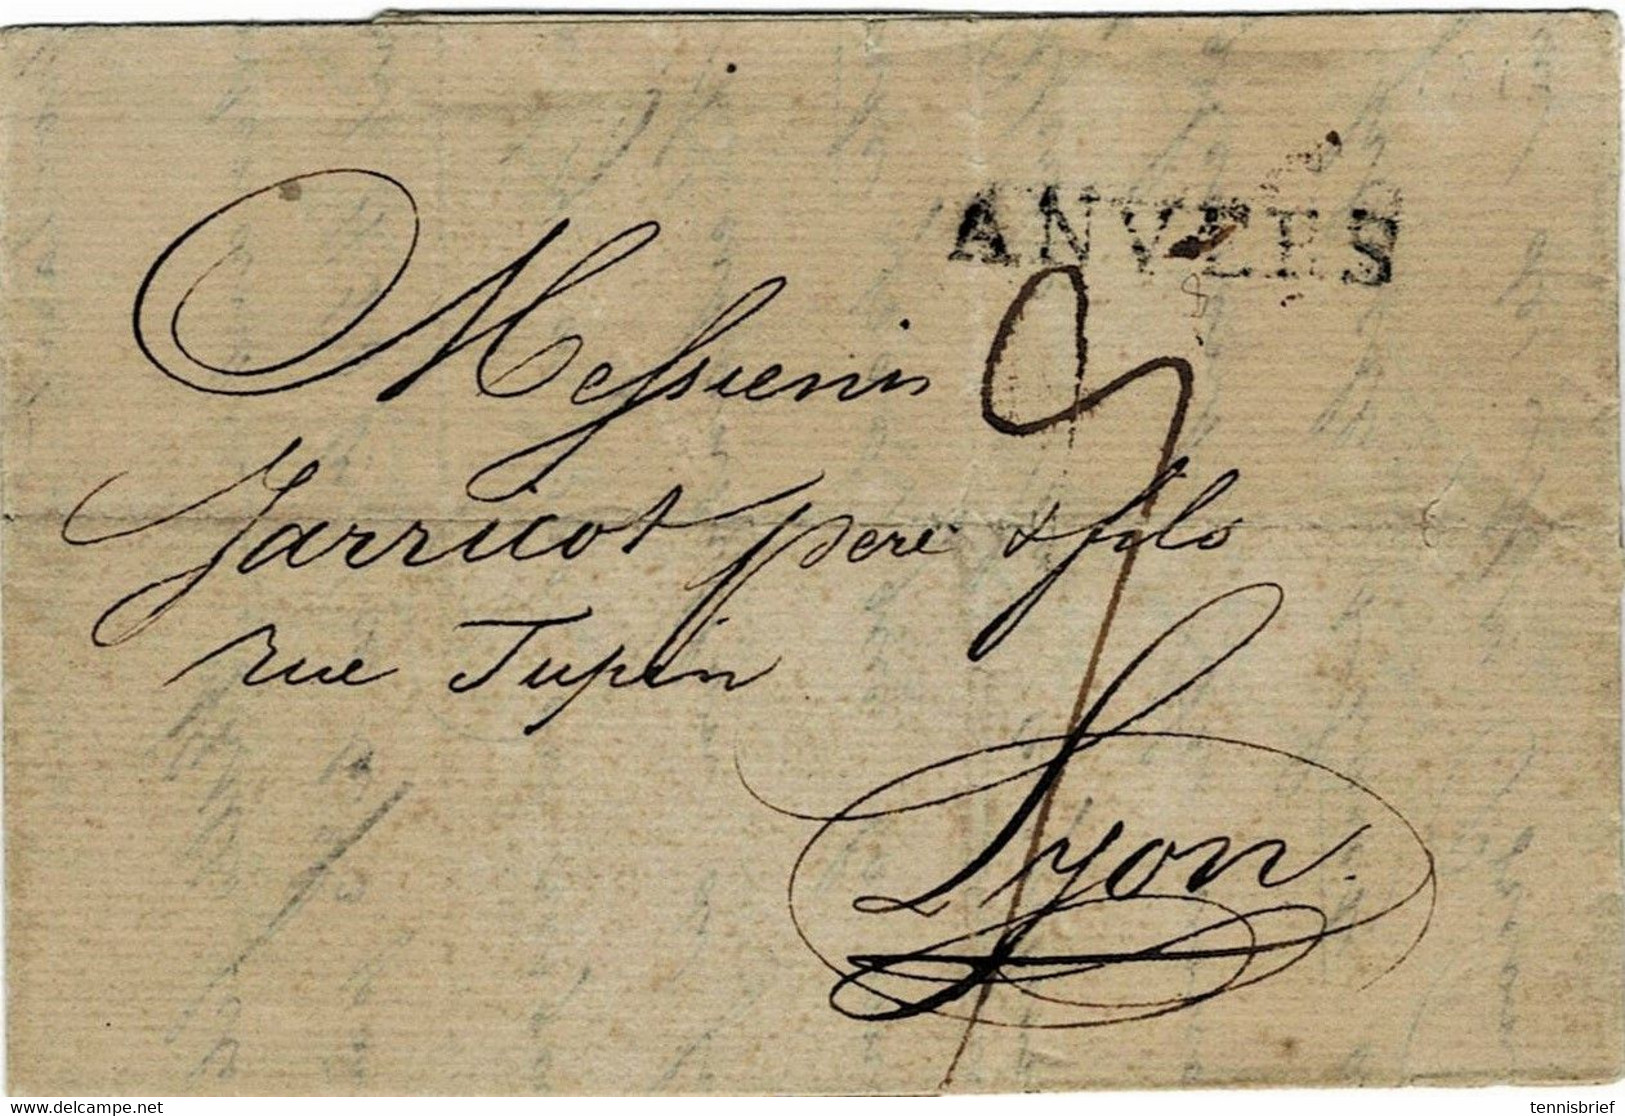 ANVERS
Messieurs
Jarricot pere & fils
rue Tupin
Lyon.
delcampe.net
tennisbrief